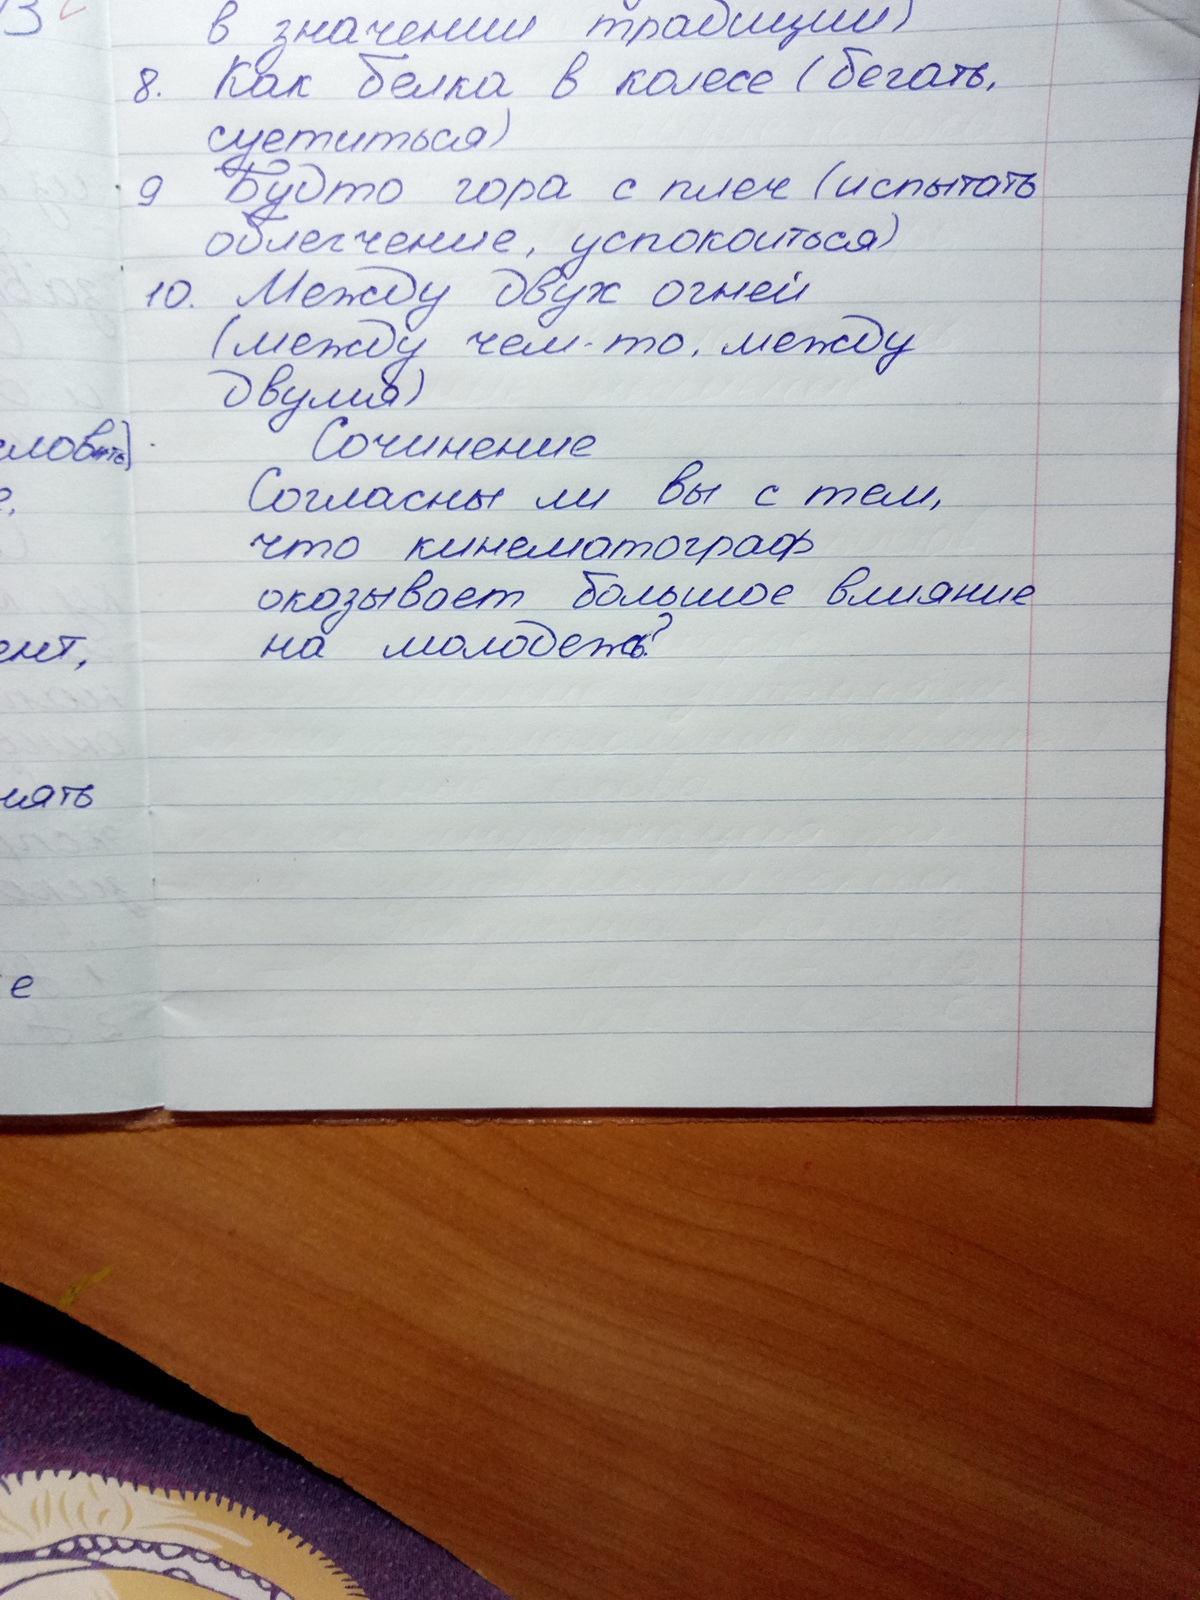 в значении традиции)
8. Как белка в колесе (бегать,
суетиться)
9 Будто гора с плеч (испытать
облегчение, успокоиться)
10. Между двух огней
(между чем-то, между
двумя)
Сочинение
Согласны ли вы с тем,
что кинематограф
оказывает большое влияние
на молодежь?